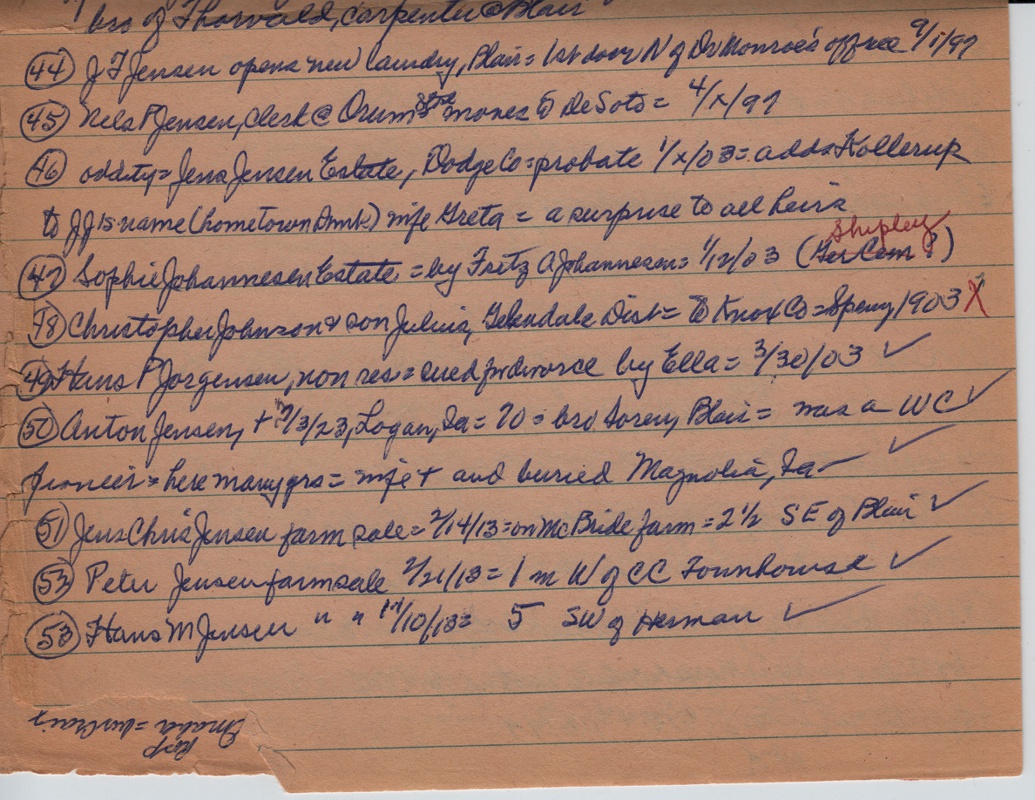 bro of Thorvald, carpenter @ Blair
(44) J F Jensen opens new laundry, Blair = 1st door N of Dr Monroe's office 9/1/97
(45) Nels P Jensen, clerk @ Orum store moves to DeSoto = 4/x/97
(46) oddity = Jens Jensen Estate, Dodge Co = probate 1/x/03 = adds Hollerup
to JJ's name (hometown Dmk) wife Greta = a surprise to all heirs
(47) Sophie Johannesen Estate = by Fritz A Johannesen = 1/12/03 (Ger Cem ?)
Shipley
(48) Christopher Johnson & son Julius, Dist = to Knox Co = Spring 1903 X
(49) Hans P Jorgensen, non res = sued for divorce by Ella = 3/30/03 ✓
(50) Anton Jensen, + /3/23, Logan, Ia = 70 = bro Soren, Blair = was a WC ✓
pioneer = here many yrs = wife + and buried Magnolia, Ia ✓
(51) Jens Chris Jensen farm sale = 2/14/13 = on McBride farm = 2 1/2 SE of Blair ✓
(52) Peter Jensen farm sale 2/21/13 = 1 m W of CC Townhouse ✓
(53) Hans M Jensen " " /10/13 = 5 SW of Herman ✓
Omaha =